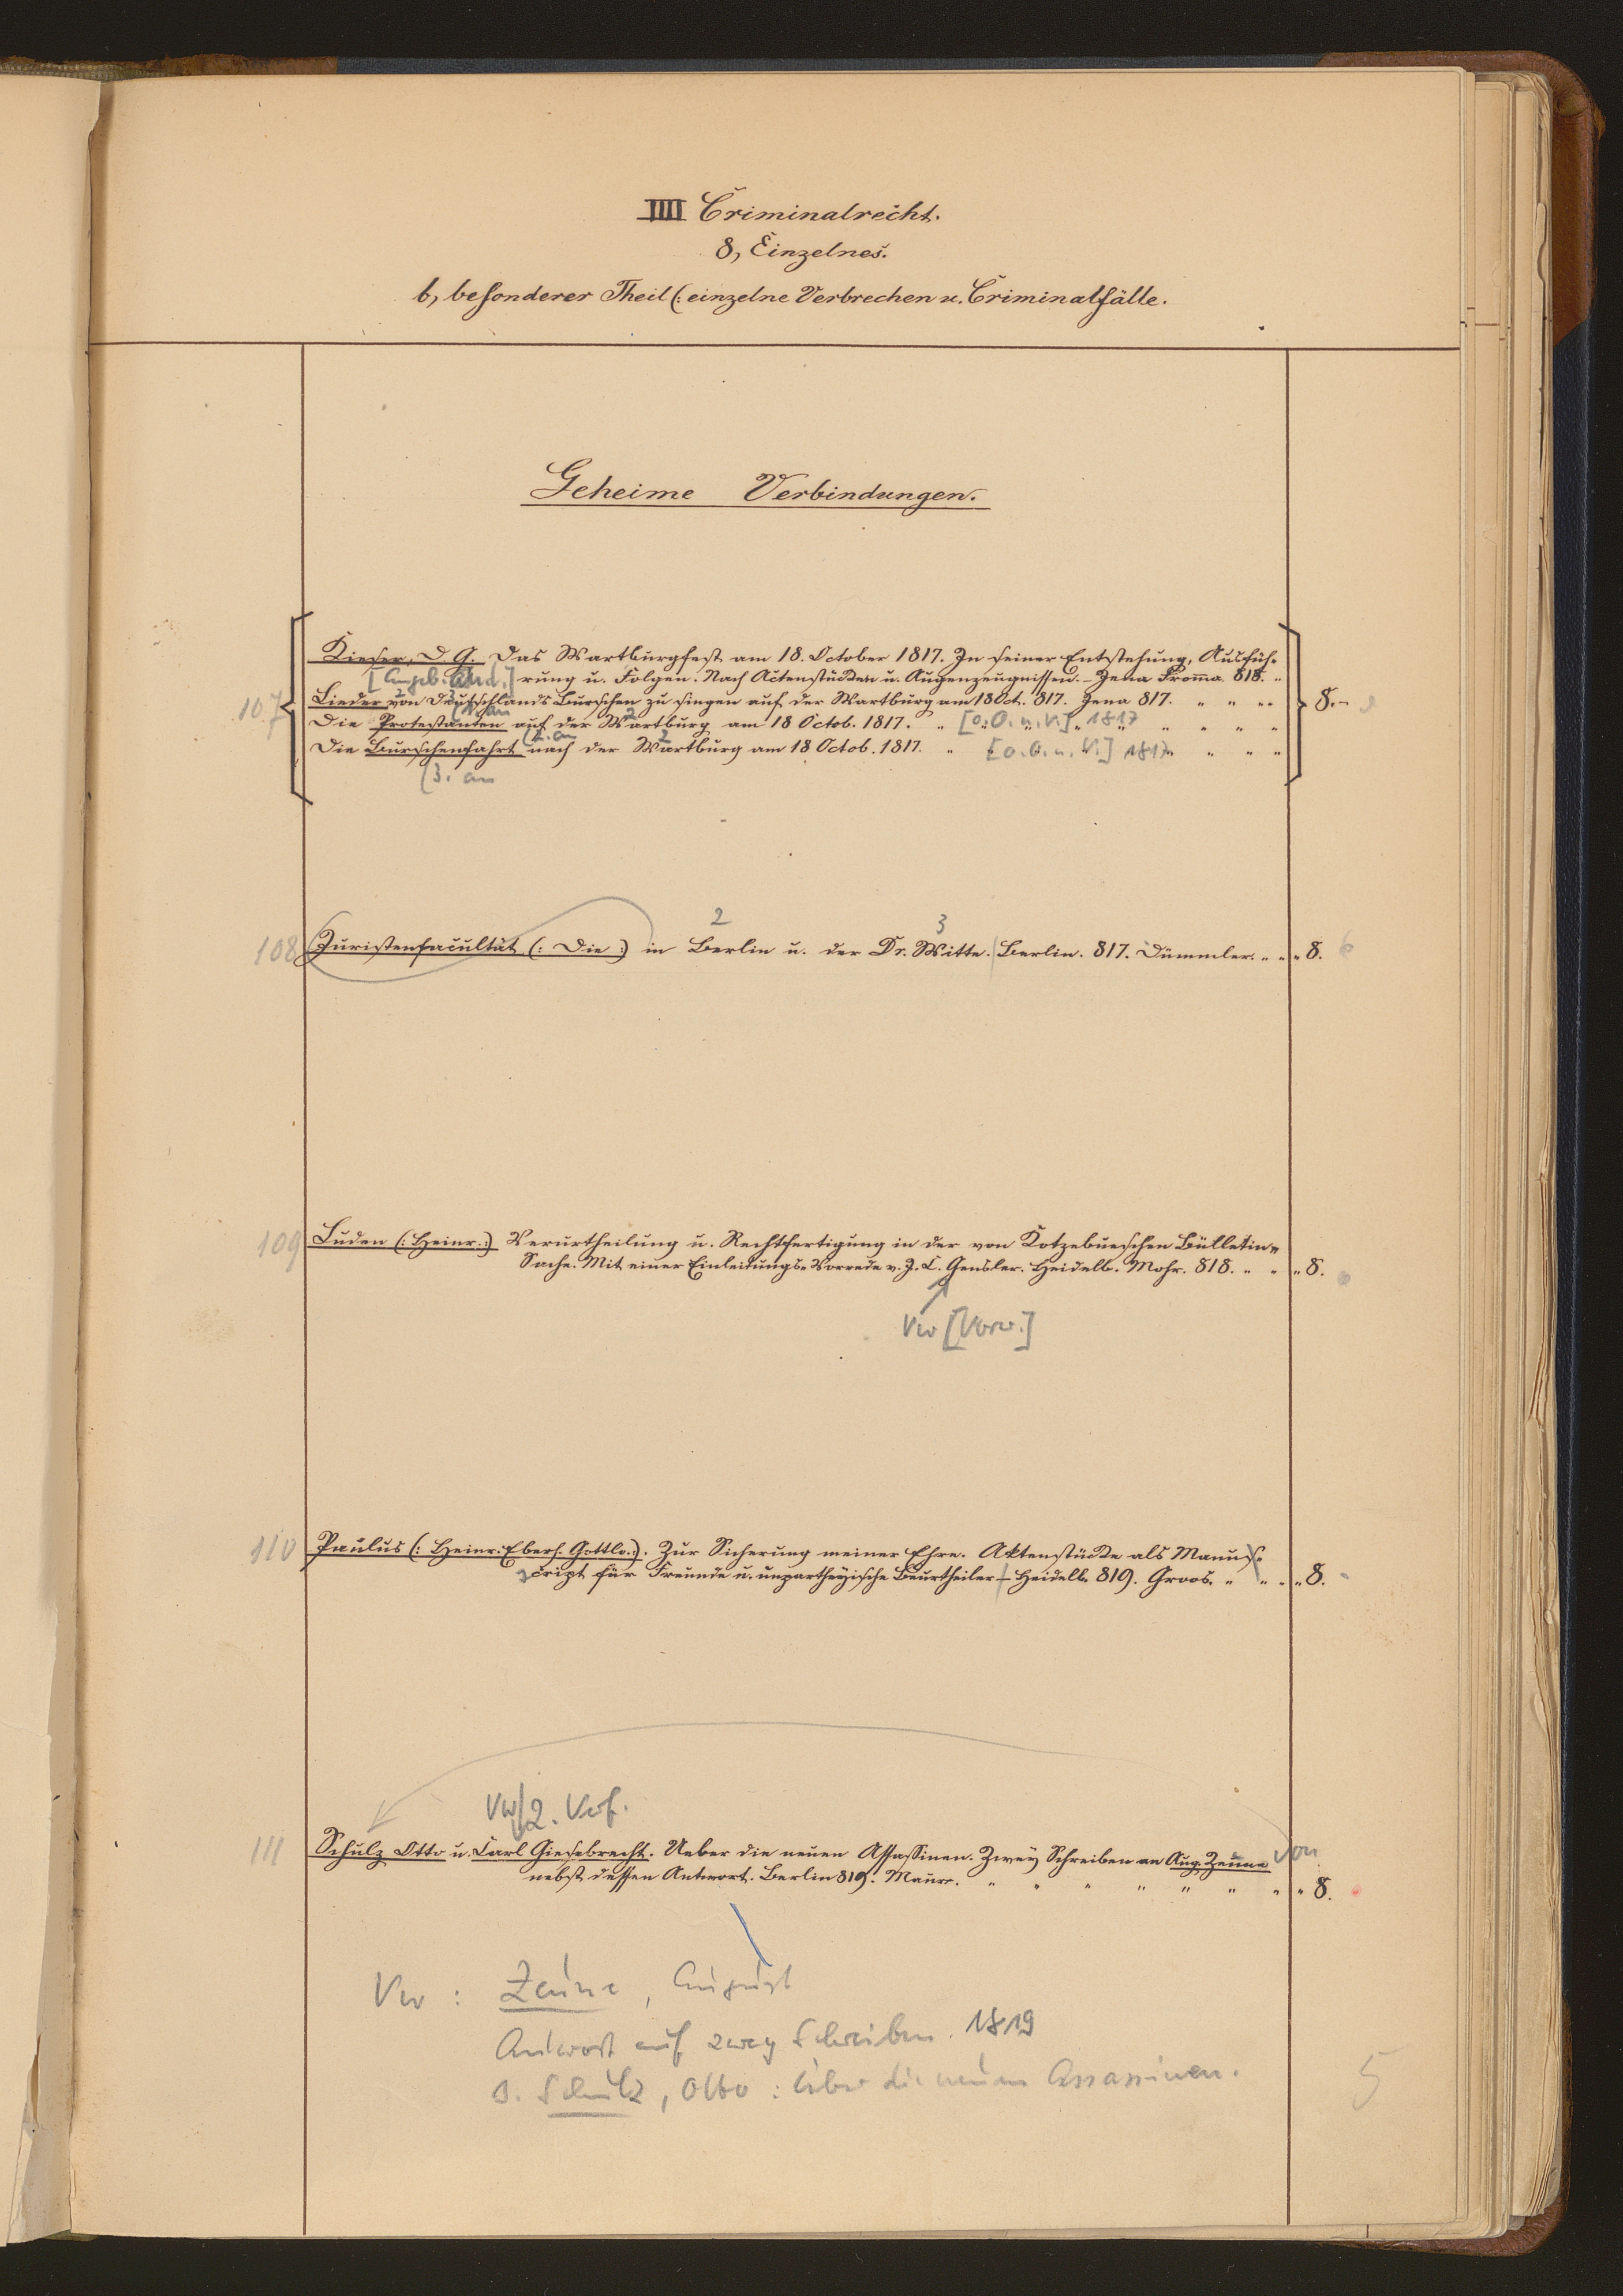 IIII Criminalrecht.
8, Einzelnes.
b, besonderer Theil (: einzelne Verbrechen u. Criminalfälle.
Geheime Verbindungen.
107
Kieser, D. G. Das Wartburgfest am 18. October 1817. In seiner Entstehung, Ausfüh-
[Angeb. sind:] rung u. Folgen. Nach Actenstücken u. Augenzeugnissen. – Jena Fromma 818. "
Lieder von Deutschlands Burschen zu singen auf der Wartburg am 18 Oct. 817. Jena 817. " " " 8.-
(1. an
Die Protestanten auf der Wartburg am 18 Octob. 1817. " [o. O. u. V.] 1817 " " " "
(2. an
Die Burschenfahrt nach der Wartburg am 18 Octob. 1817. " [o. O. u. V.] 1817 " " "
(3. an
2 3
108 Juristenfacultät (: Die :) in Berlin u. der Dr. Witte. Berlin. 817. Dümmler. " " " 8.
109 Luden (: Heinr. :) Verurtheilung u. Rechtfertigung in der von Kotzebueschen Bülletin-
Sache. Mit einer Einleitungs-Vorrede v. J. C. Gensler. Heidelb. Mohr. 818. " " " 8.
Vw [Vorr.]
110 Paulus (: Heinr. Eberh. Gottlo. :). Zur Sicherung meiner Ehre. Aktenstücke als Manus-
cript für Freunde u. unpartheyische Beurtheiler – Heidelb. 819. Groos. " " " " 8.
Vw/2. Verf.
111 Schulz Otto u. Carl Giesebrecht. Ueber die neuen Assassinen. Zwey Schreiben an Aug. Zeune von
nebst dessen Antwort. Berlin 819. Maurer. " " " " " " " " 8.
Vw: Zeune, August
Antwort auf zwey Schreiben. 1819
s. Schulz, Otto: Über die neuen Assassinen.
5